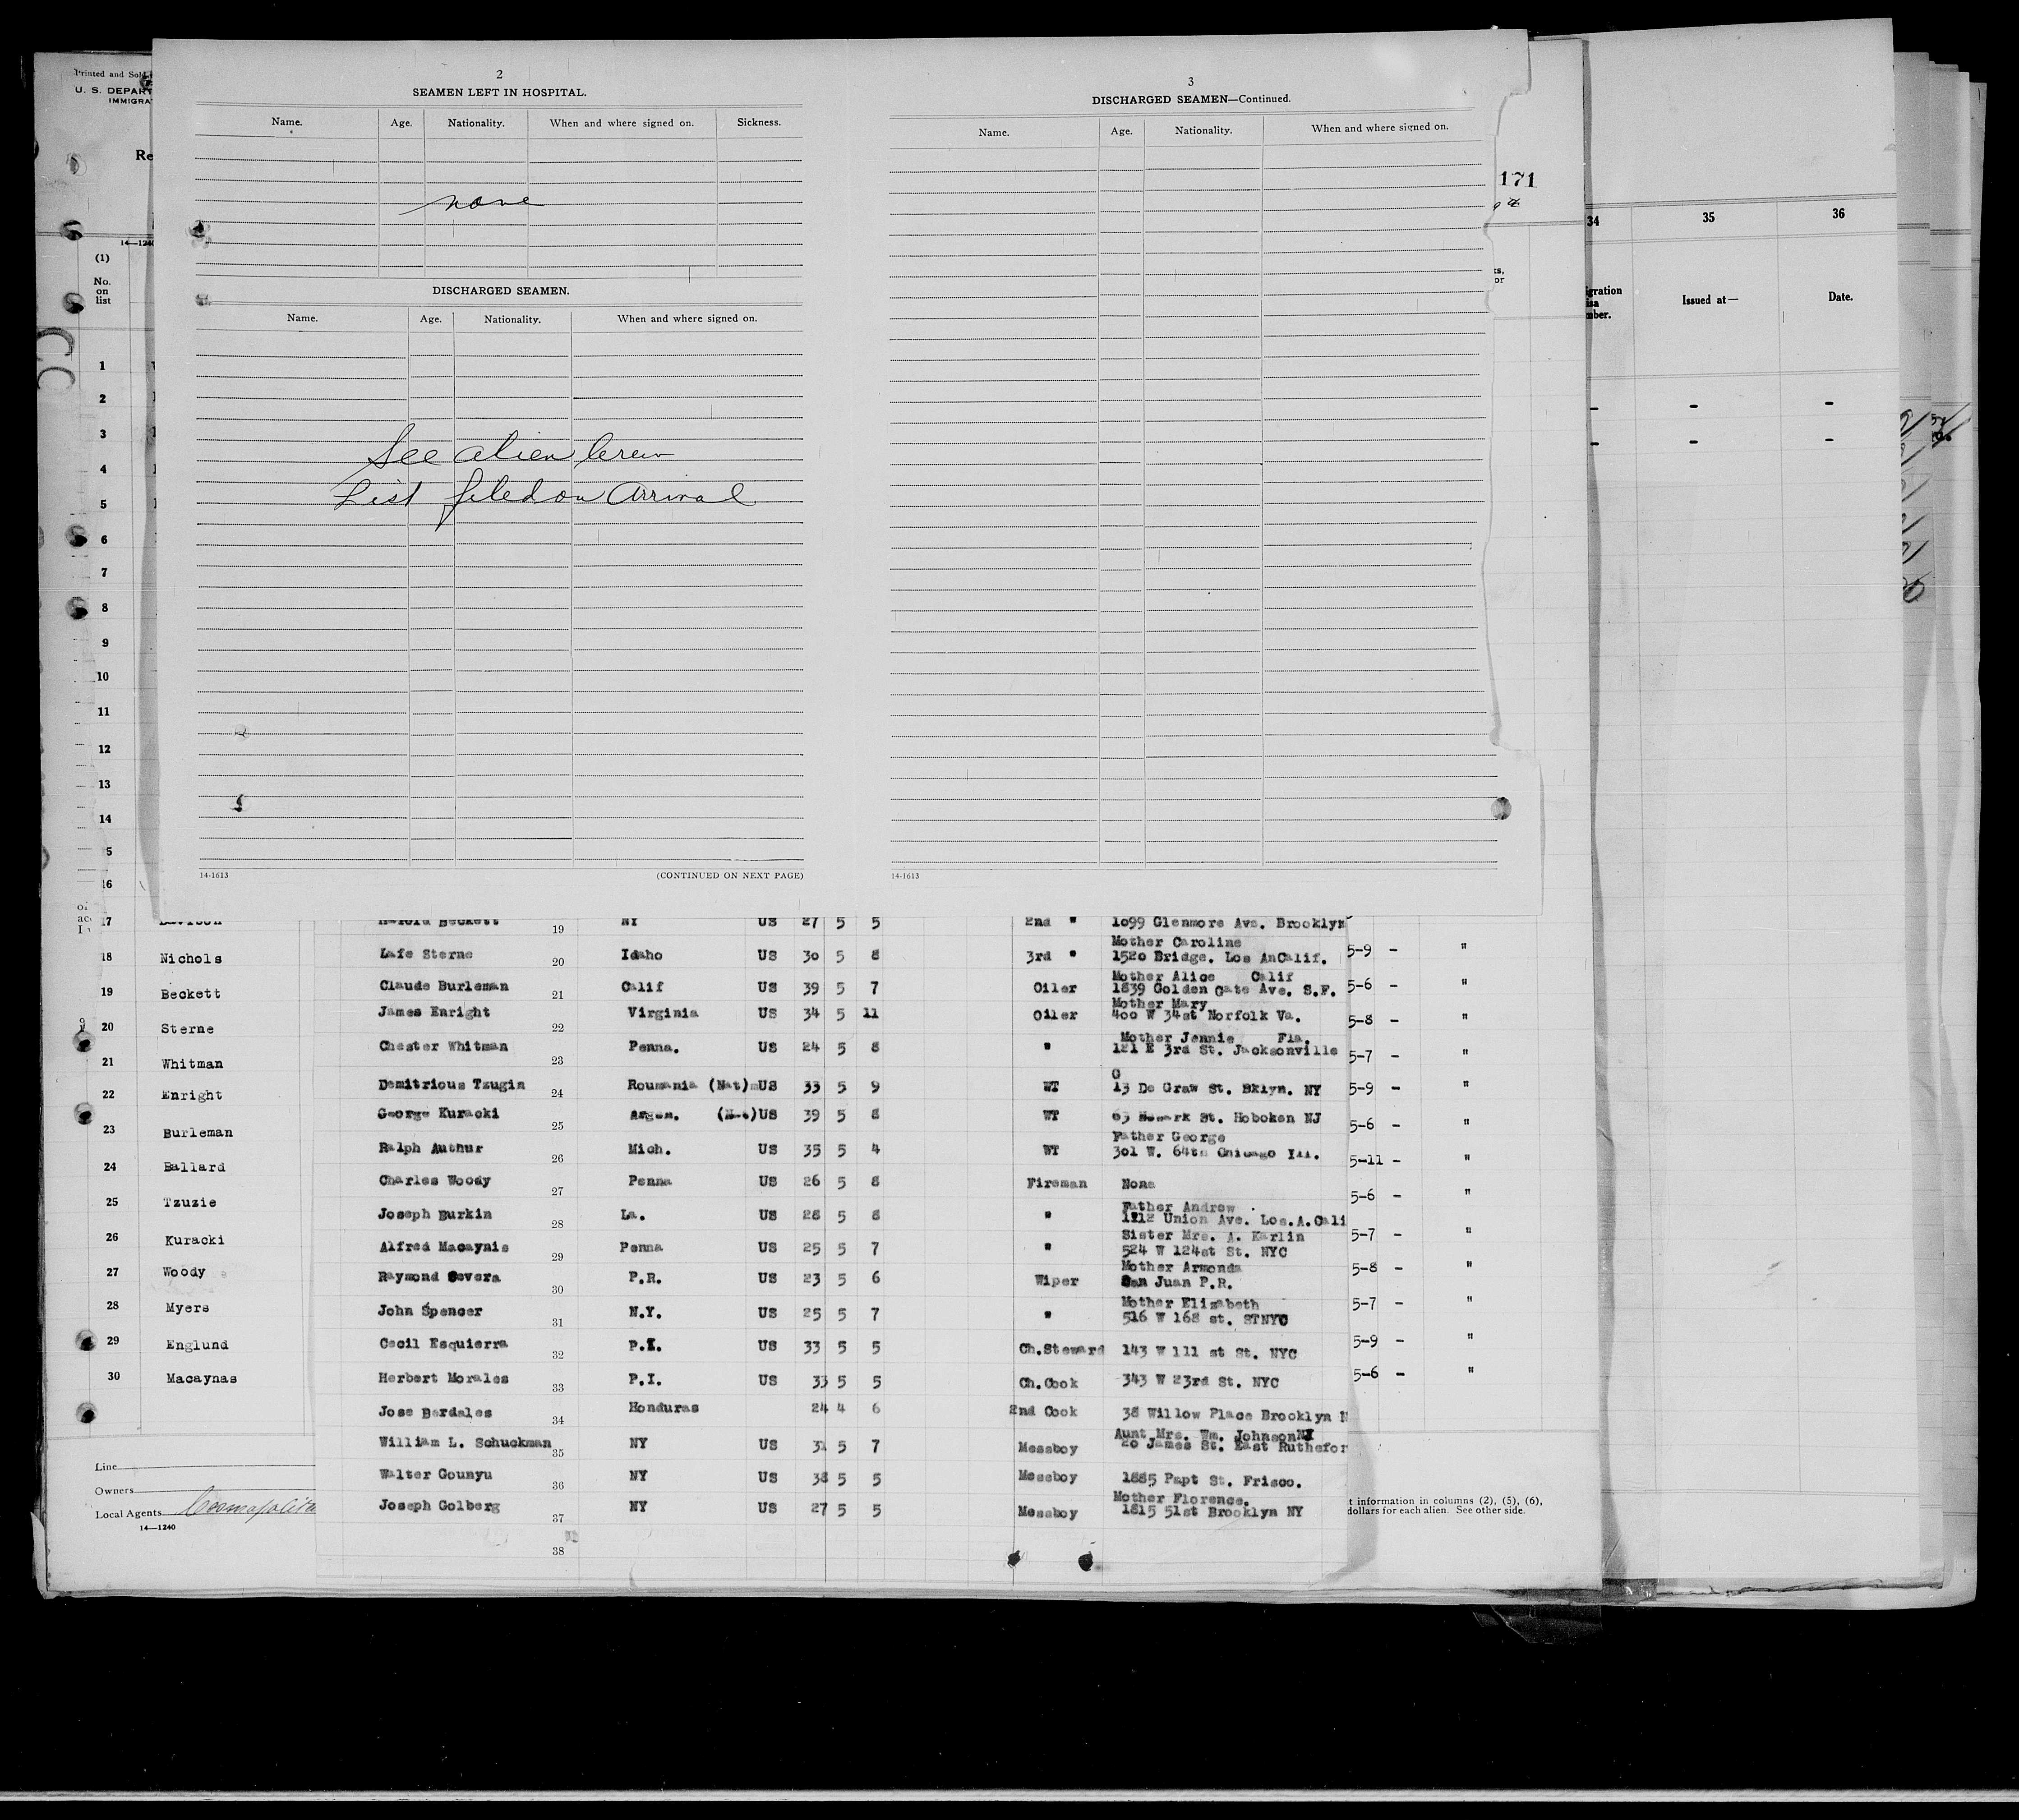 Printed and Sold
U. S. DEPAR
IMMIGRA
Re
14—1240
(1)
No.
on
list
2
SEAMEN LEFT IN HOSPITAL.
Name. Age. Nationality. When and where signed on. Sickness.
none
DISCHARGED SEAMEN.
Name. Age. Nationality. When and where signed on.
See alien Crew
List filed on Arrival
14-1613 (CONTINUED ON NEXT PAGE)
3
DISCHARGED SEAMEN—Continued.
Name. Age. Nationality. When and where signed on.
14-1613
171
34 35 36
Issued at— Date.
- -
- -
1
2
3
4
5
6
7
8
9
10
11
12
13
14
5
16
17
18 Nichols
19 Beckett
20 Sterne
21 Whitman
22 Enright
23 Burleman
24 Ballard
25 Tzuzie
26 Kuracki
27 Woody
28 Myers
29 Englund
30 Macaynas
Line
Owners
Local Agents Cosmopolitan
14—1240
Harold Beckett 19 NY US 27 5 5 2nd " 1099 Glenmore Ave. Brooklyn
Mother Caroline
Lafe Sterne 20 Idaho US 30 5 8 3rd " 1520 Bridge. Los AnCalif. 5-9 - "
Mother Alice Calif
Claude Burleman 21 Calif US 39 5 7 Oiler 1839 Golden Gate Ave. S.F. 5-6 - "
Mother Mary
James Enright 22 Virginia US 34 5 11 Oiler 400 W 34st Norfolk Va. 5-8 - "
Mother Jennie Fla.
Chester Whitman 23 Penna. US 24 5 8 " 121 E 3rd St. Jacksonville 5-7 - "
Demitrious Tzugin 24 Roumania (Nat) US 33 5 9 WT 13 De Graw St. Bklyn. NY 5-9 - "
George Kuracki 25 Argen. (Nat) US 39 5 8 WT 63 Newark St. Hoboken NJ 5-6 - "
Father George
Ralph Authur 26 Mich. US 35 5 4 WT 301 W. 64th Chicago Ill. 5-11 - "
Charles Woody 27 Penna US 26 5 8 Fireman None 5-6 - "
Father Andrew
Joseph Burkin 28 La. US 28 5 8 " 1212 Union Ave. Los.A.Cali 5-7 - "
Sister Mrs. A. Karlin
Alfred Macaynis 29 Penna US 25 5 7 " 524 W 124st St. NYC
Mother Armonda 5-8 - "
Raymond Severa 30 P.R. US 23 5 6 Wiper San Juan P.R.
Mother Elizabeth 5-7 - "
John Spencer 31 N.Y. US 25 5 7 " 516 W 168 st. STNYC
Cecil Esquierra 32 P.I. US 33 5 5 Ch.Steward 143 W 111 st St. NYC 5-9 - "
Herbert Morales 33 P.I. US 33 5 5 Ch.Cook 343 W 23rd St. NYC 5-6 - "
Jose Bardales 34 Honduras 24 4 6 2nd Cook 38 Willow Place Brooklyn N
Aunt Mrs. Wm. Johnson NJ
William L. Schuckman 35 NY US 31 5 7 Messboy 20 James St. East Ruthefor
Walter Gounyu 36 NY US 38 5 5 Messboy 1885 Papt St. Frisco.
Mother Florence.
Joseph Golberg 37 NY US 27 5 5 Messboy 1815 51st Brooklyn NY
38
t information in columns (2), (5), (6),
dollars for each alien. See other side.